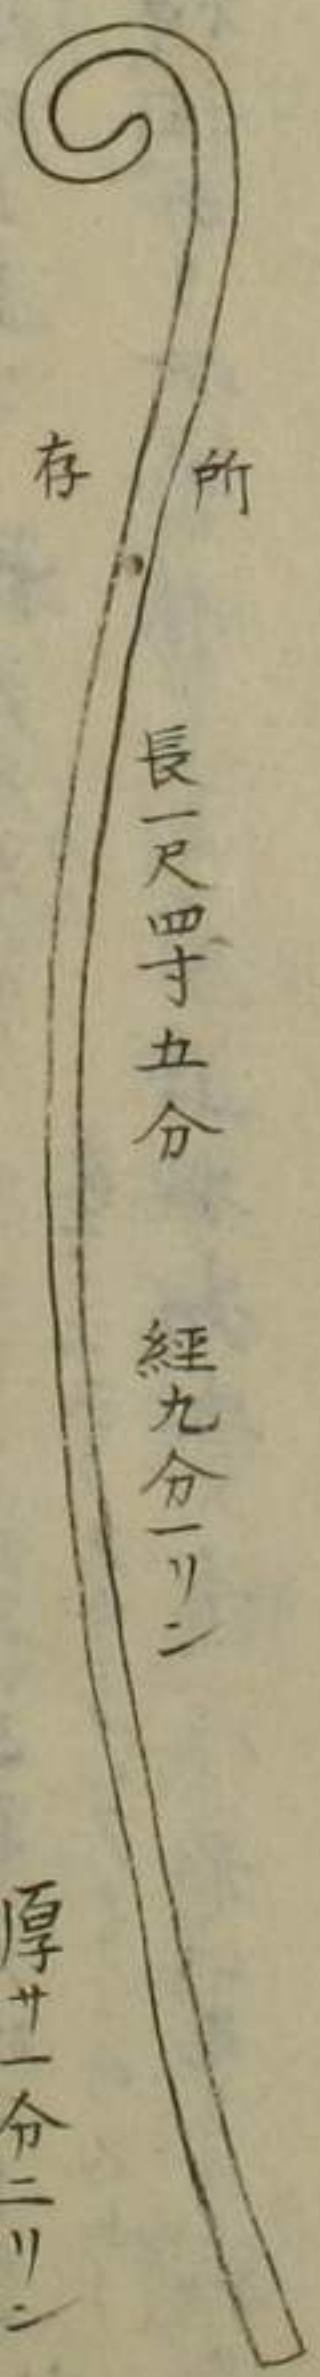 所存
長一尺四寸五分　經九分一リン
厚サ一分二リン